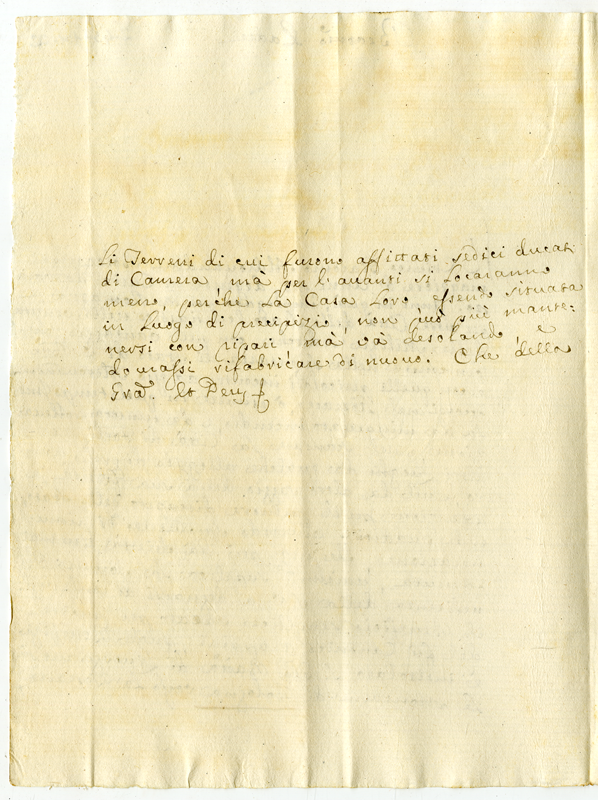 Li Terreni di cui furono affittati sedici ducati
di Camera mà per l'auanti si Locaranno
meno, perche La Casa Loro essendo situata
in Luogo di precipizi, non può più mante=
nersi con ripari mà và desolando, e
dourassi rifabricare di nuouo. Che della
Gra. Et Deus